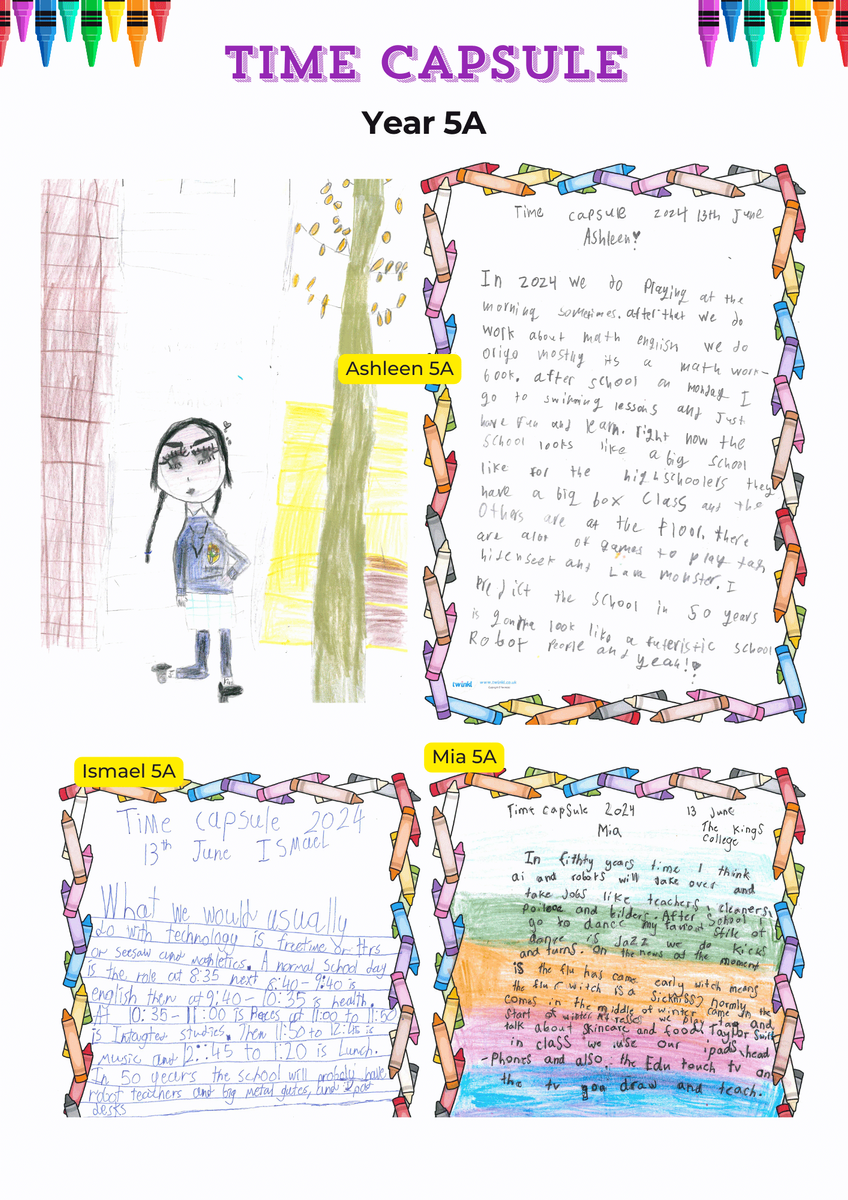 TIME CAPSULE
Year 5A
Ashleen 5A
Time capsule 2024 13th June
Ashleen!
In 2024 we do Playing at the
morning sometimes. after that we do
work about math english we do
origo mostly its a math work-
book. after school on monday I
go to swimming lessons and Just
have fun and learn. right now the
School looks like a big school
like for the highschoolers they
have a big box Class and the
Others are at the floor. there
are alot of games to play tag
hidenseek and Lava monster. I
predict the school in 50 years
is gonna look like a futeristic school
Robot people and yeah!
twinkl www.twinkl.co.uk
Ismael 5A
Time capsule 2024
13th June Ismael
What we would usually
do with technology is freetime or ttrs
or seesaw and mathletics. A normal School day
is the role at 8:35 next 8:40-9:40 is
english then at 9:40-10:35 is health.
At 10:35-11:00 is Reces at 11:00 to 11:50
is Studies. Then 11:50 to 12:45 is
music and 12:45 to 1:20 is Lunch.
In 50 years the school will have
robot teachers and big metal gates, and
desks
Mia 5A
Time Capsule 2024 13 June
Mia The Kings
College
In fithty years time I think
ai and robots will take over and
take Jobs like teachers, cleaners,
poilece and bilders. After School I
go to dance my favourit Stile of
dance is Jazz we do kicks
and turns. On the news at the moment
is the flu has came early witch means
the flu (witch is a Sickniss) normly
comes in the middle of winter came in the
Start of winter. At reses we play tag and
talk about skincare and food! Taylor Swift
in class we use our ipads, head
-Phones and also, the Edu touch tv on
the tv you draw and teach.